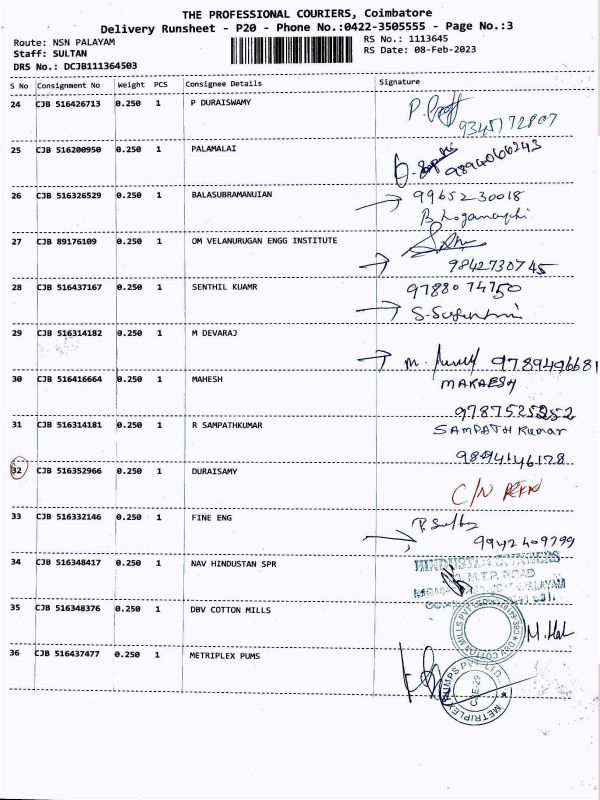 THE PROFESSIONAL COURIERS, Coimbatore
Delivery Runsheet - P20 - Phone No.:0422-3505555 - Page No.:3
Route: NSN PALAYAM
Staff: SULTAN
DRS No.: DCJB111364503
RS No.: 1113645
RS Date: 08-Feb-2023
S No Consignment No Weight PCS Consignee Details Signature
24 CJB 516426713 0.250 1 P DURAISWAMY
9345172807
25 CJB 516200950 0.250 1 PALAMALAI 9894066243
26 CJB 516326529 0.250 1 BALASUBRAMANUIAN 99652 30018
27 CJB 89176109 0.250 1 OM VELANURUGAN ENGG INSTITUTE
9842730745
28 CJB 516437167 0.250 1 SENTHIL KUAMR 97880 74750
29 CJB 516314182 0.250 1 M DEVARAJ
9789496681
30 CJB 516416664 0.250 1 MAHESH
9787525252
31 CJB 516314181 0.250 1 R SAMPATHKUMAR SAMPATH Kumar
9894146128
32 CJB 516352966 0.250 1 DURAISAMY
C/N
33 CJB 516332146 0.250 1 FINE ENG
9942409799
34 CJB 516348417 0.250 1 NAV HINDUSTAN SPR
M.T.P. ROAD
35 CJB 516348376 0.250 1 DBV COTTON MILLS
36 CJB 516437477 0.250 1 METRIPLEX PUMS